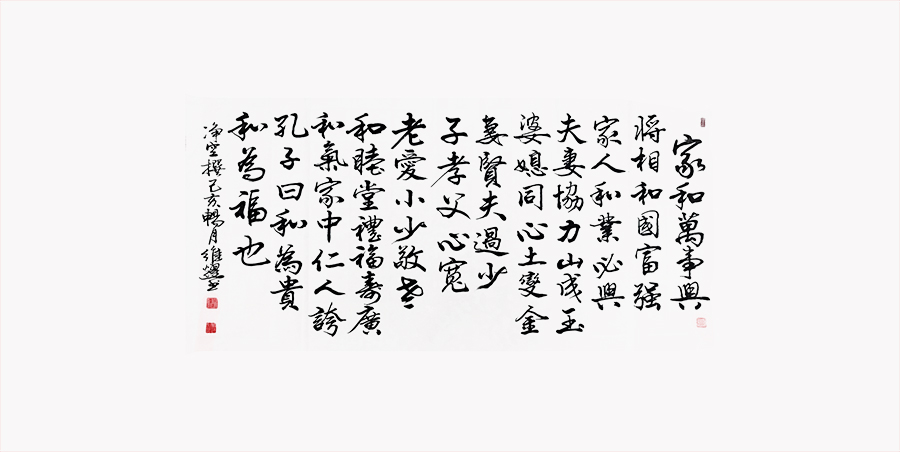 家和萬事興
將相和國富强
家人和業必興
夫妻協力山成玉
婆媳同心土變金
妻賢夫過少
子孝父心寬
老愛小少敬老
和睦堂禮福壽廣
和氣家中仁人誇
孔子曰和為貴
和為福也
淨空撰己亥暢月維